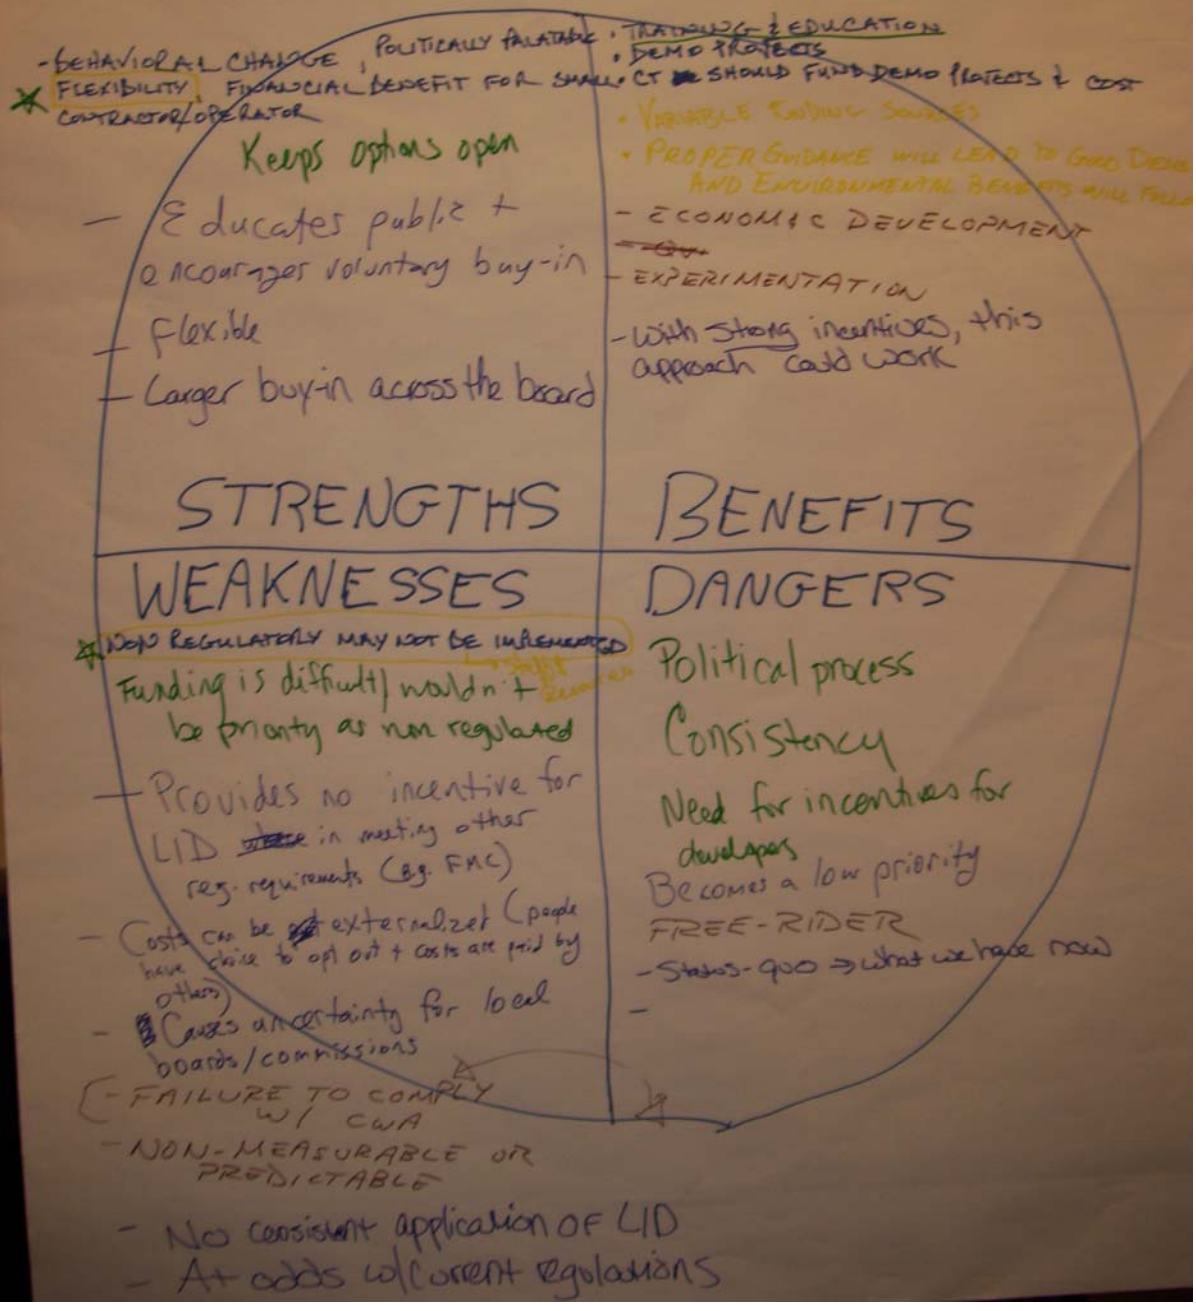 - BEHAVIORAL CHANGE, POLITICALLY PALATABLE
FLEXIBILITY, FINANCIAL BENEFIT FOR SMALL
CONTRACTOR/OPERATOR
Keeps options open
- Educates public +
encourages voluntary buy-in
- Flexible
- Larger buy-in across the board
STRENGTHS
• TRAINING & EDUCATION
• DEMO PROJECTS
• CT SHOULD FUND DEMO PROJECTS & COST
• VARIABLE FUNDING SOURCES
• PROPER GUIDANCE WILL LEAD TO GOOD
AND ENVIRONMENTAL BENEFITS WILL
- ECONOMIC DEVELOPMENT
- EXPERIMENTATION
- With strong incentives, this
approach could work
BENEFITS
WEAKNESSES
NON REGULATORY MAY NOT BE IMPLEMENTED
Funding is difficult/wouldn't
be priority as non regulated
- Provides no incentive for
LID in meeting other
reg. requirements (eg. FMC)
- Costs can be externalized (people
have choice to opt out + costs are paid by
others)
- Causes uncertainty for local
boards/commissions
- FAILURE TO COMPLY
W/ CWA
- NON-MEASURABLE OR
PREDICTABLE
- No consistent application OF LID
- At odds w/current regulations
DANGERS
Political process
Consistency
Need for incentives for
developers
Becomes a low priority
FREE-RIDER
- Status-quo → what we have now
-